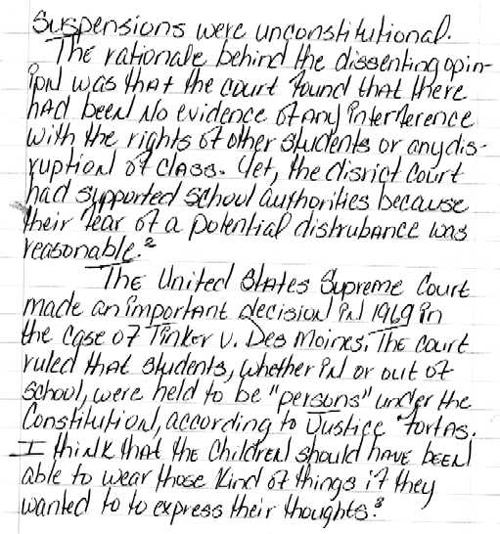 Suspensions were unconstitutional.
The rationale behind the dissenting opin-
ion was that the court found that there
had been no evidence of any interference
with the rights of other students or any dis-
ruption of class. Yet, the disrict court
had supported school authorities because
their fear of a potential distrubance was
reasonable.²
The United States Supreme Court
made an important decision in 1969 in
the case of Tinker v. Des Moines. The court
ruled that students, whether in or out of
school, were held to be "persons" under the
Constitution, according to Justice Fortas.
I think that the children should have been
able to wear those kind of things if they
wanted to to express their thoughts.³